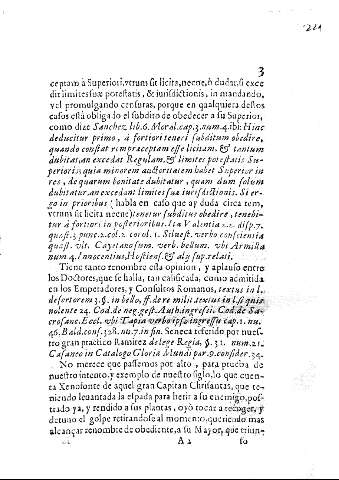 221
3
ceptam à Superiori, verum sit licita, necne, & dudat, si exce
dit limites suæ potestatis, & iurisdictionis, in mandando,
vel promulgando censuras, porque en qualquiera destos
casos està obligado el subdito de obedecer a su Superior,
como dize Sanchez lib. 6. Moral. cap. 3. num. 4. ibi: Hinc
deducitur primo, à fortiori teneri subditum obedire,
quando constat rem præceptam esse licitam, & tantum
dubitat, an excedat Regulam, & limites potestatis Su-
perioris; quia minorem authoritatem habet Superior in
re, de quarum bonitate dubitatur, quam dum solum
dubitatur, an excedant limites suæ iurisdictionis. Si er-
go in prioribus (habla en caso que ay duda circa rem,
verum sit licita necne) tenetur subditus obedire, tenebi-
tur à fortiori in posterioribus. Ita Valentia 2. 2. disp. 7.
quæst. 3. punc. 2. col. 2. corol. 1. Siluest. verbo conscientia
quæst. vlt. Cayetano sum. verb. bellum. vbi Armilla
num. 4. Innocentius, Hostiens. & alij sup. relati.
Tiene tanto renombre esta opinion, y aplauso entre
los Doctores, que se halla, tan calificada, como admitida
en los Emperadores, y Consultos Romanos, textus in l.
desertorem 3. §. in bello, ff. de re milit. textus in l. si quis
nolente 24. Cod. de neg. gest. Auth. ingressi. Cod. de Sa-
crosanc. Eccl. vbi Tapia verbo ipso ingressu cap. 1. nu.
45. Bald. cons. 328. nu. 7. in fin. Seneca referido por nues-
tro gran practico Ramirez de lege Regia, §. 31. num. 21.
Casaneo in Catalogo Gloriæ Mundi par. 9. consider. 34.
No merece que passemos por alto, para prueba de
nuestro intento, y exemplo de nuestro siglo, lo que cuen-
ta Xenofonte de aquel gran Capitan Chrisantas, que te-
niendo leuantada la espada para herir a su enemigo, pos-
trado ya, y rendido a sus plantas, oyò tocar a recoger, y
detuuo el golpe retirandose al momento, queriendo mas
alcançar renombre de obediente, a su Mayor, que triun-
A 2 fo